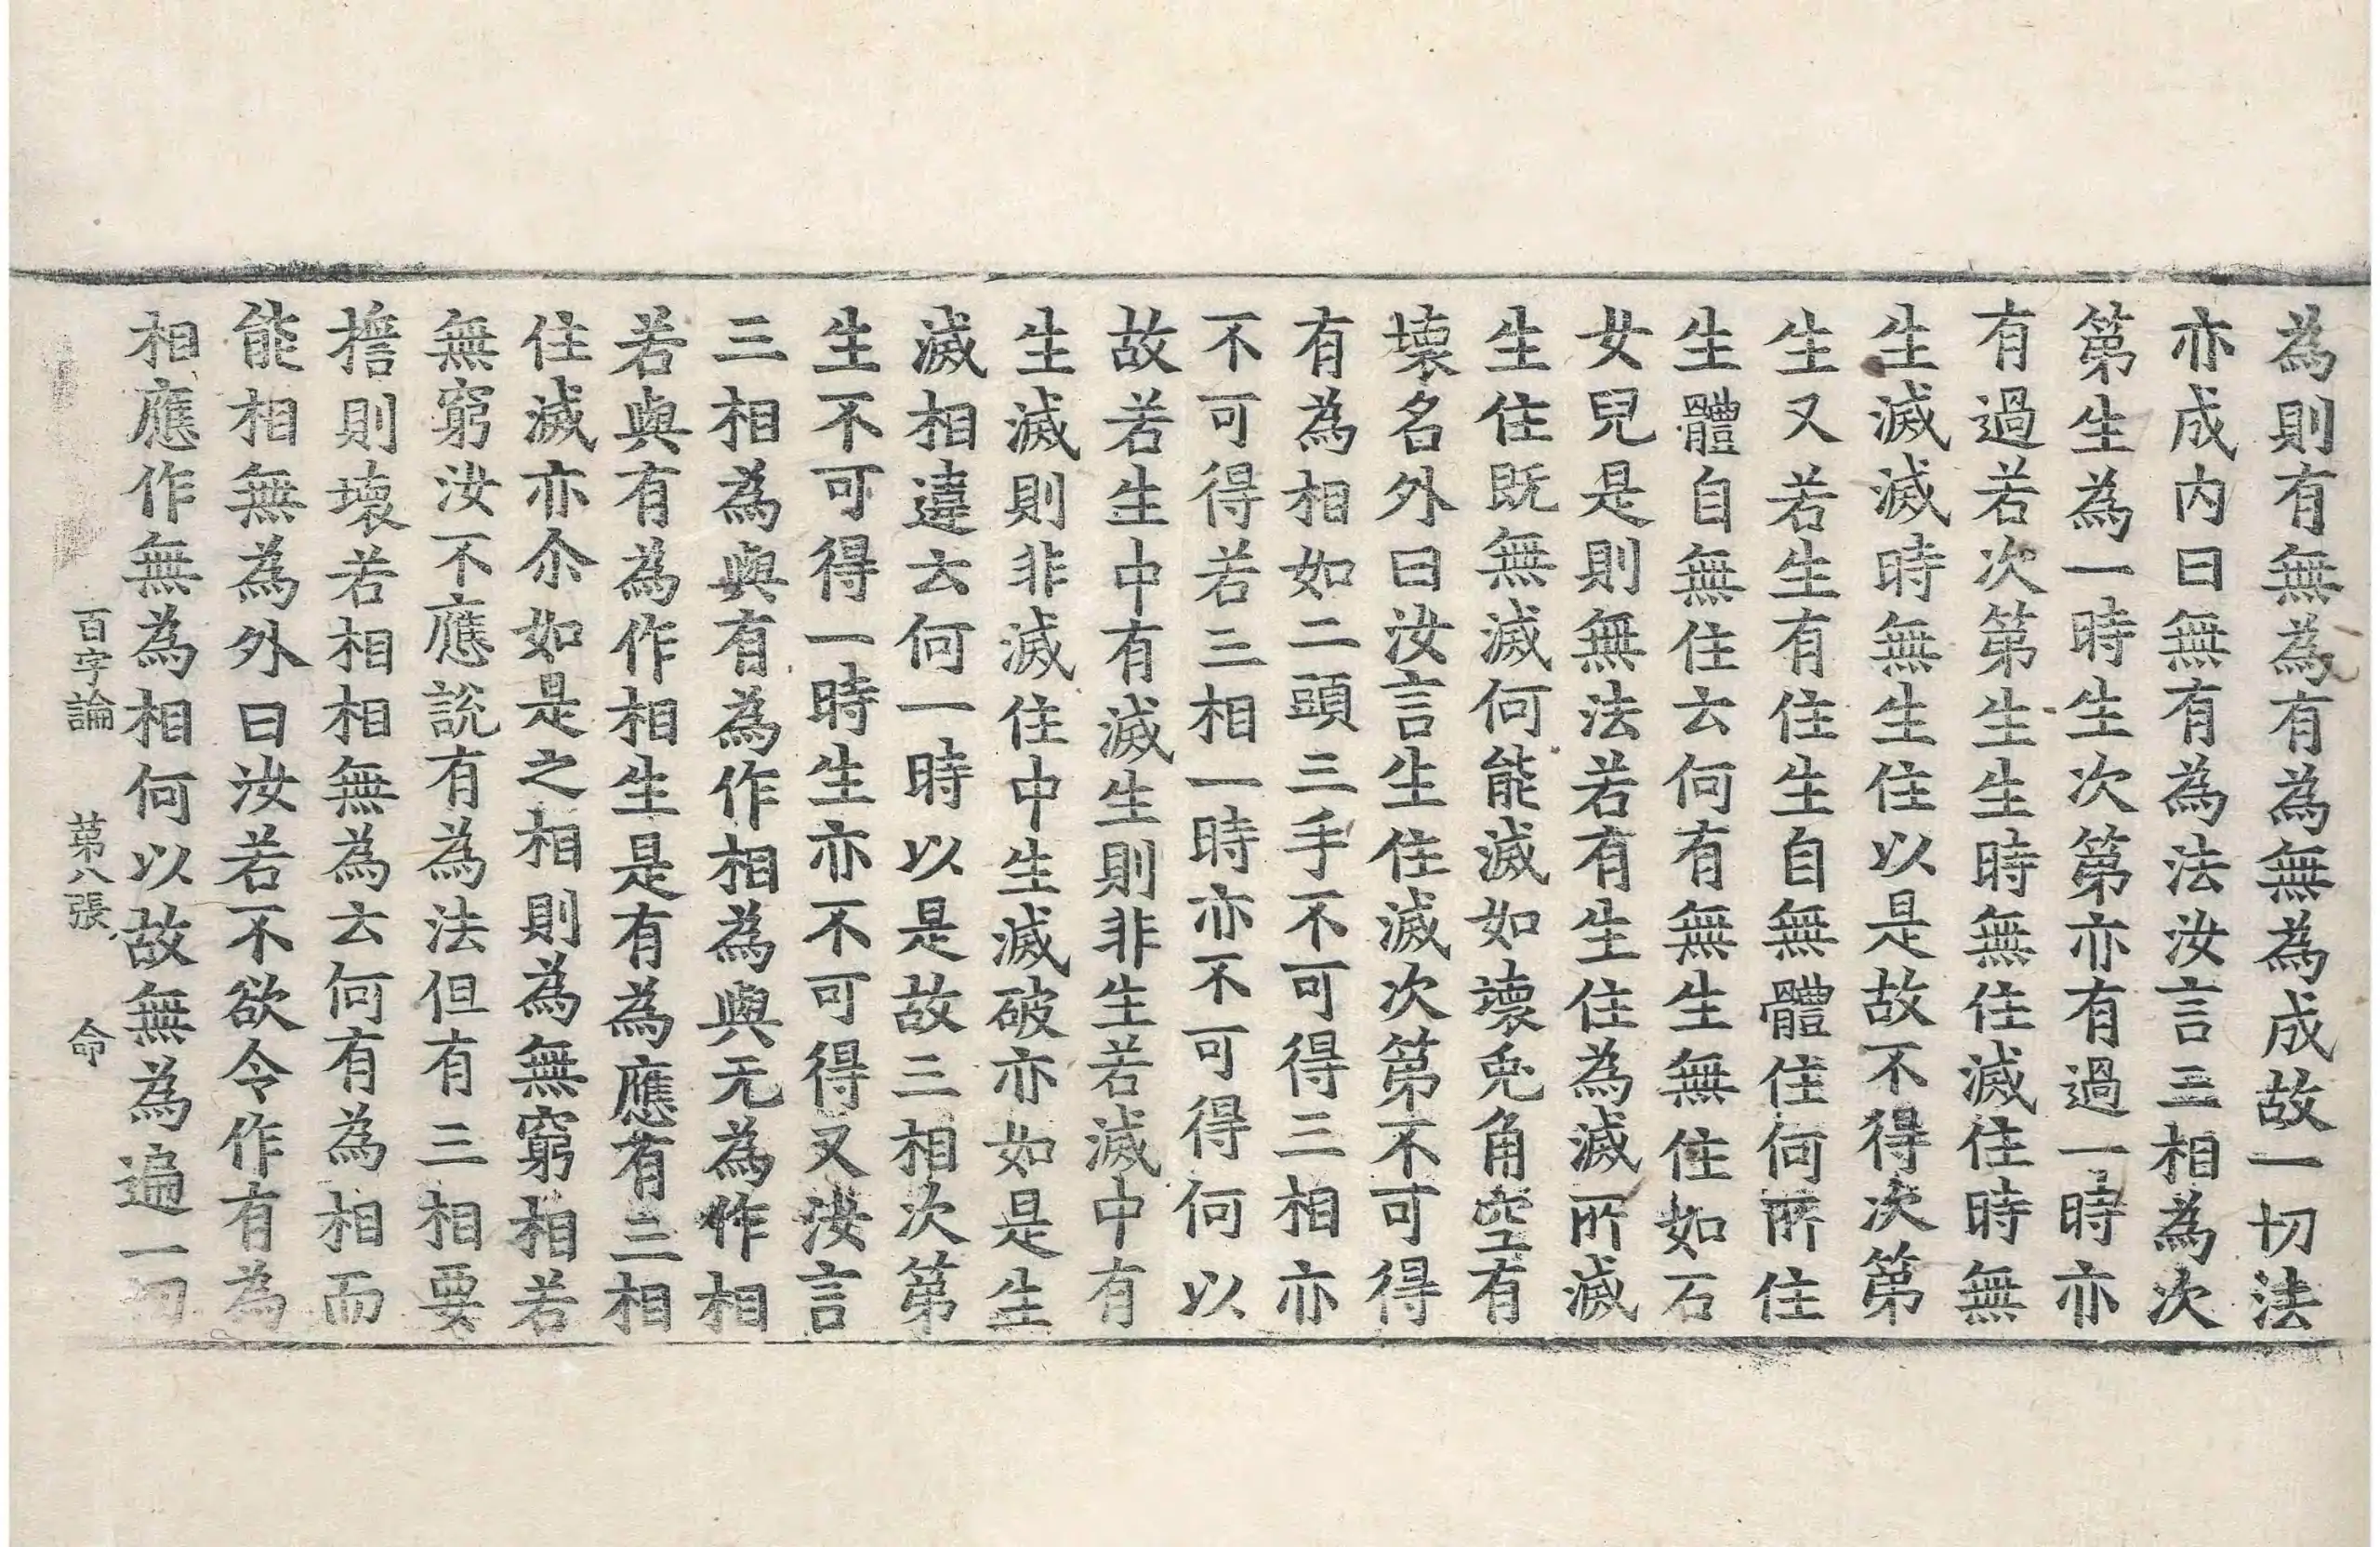 為則有無為有為無為成故一切法
亦成内曰無有為法汝言三相為次
第生為一時生次第亦有過一時亦
有過若次第生生時無住滅住時無
生滅滅時無生住以是故不得次第
生又若生有住生自無體住何所住
生體自無住云何有無生無住如石
女兒是則無法若有生住為滅所滅
生住既無滅何能滅如壞兎角空有
壞名外曰汝言生住滅次第不可得
有為相如二頭三手不可得三相亦
不可得若三相一時亦不可得何以
故若生中有滅生則非生若滅中有
生滅則非滅住中生滅破亦如是生
滅相違云何一時以是故三相次第
生不可得一時生亦不可得又汝言
三相為與有為作相為與无為作相
若與有為作相生是有為應有三相
住滅亦尒如是之相則為無窮相若
無窮汝不應說有為法但有三相要
擔則壞若相相無為云何有為相而
能相無為外曰汝若不欲令作有為
相應作無為相何以故無為遍一切
百字論 第八張 命